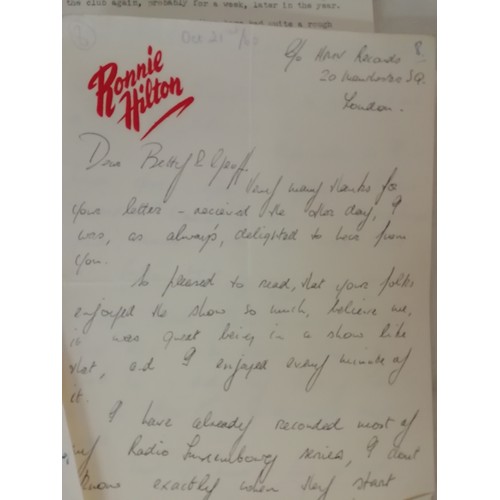 the club again, probably for a week, later in the year.
had quite a rough
Oct 21st
c/o HMV Records
20 Manchester SQ.
London.
Ronnie
Hilton
Dear Betty & Geoff.
Very many thanks for
your letter - recieved the other day, I
was, as always, delighted to hear from
you.
So pleased to read, that your folks
enjoyed the show so much, believe me,
it was great being in a show like
that, and I enjoyed every minute of
it.
I have already recorded most of
my Radio Luxembourg series, I dont
know exactly when they start